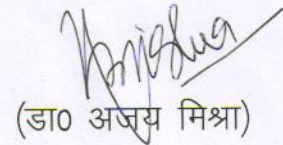 (डा0 अजय मिश्रा)